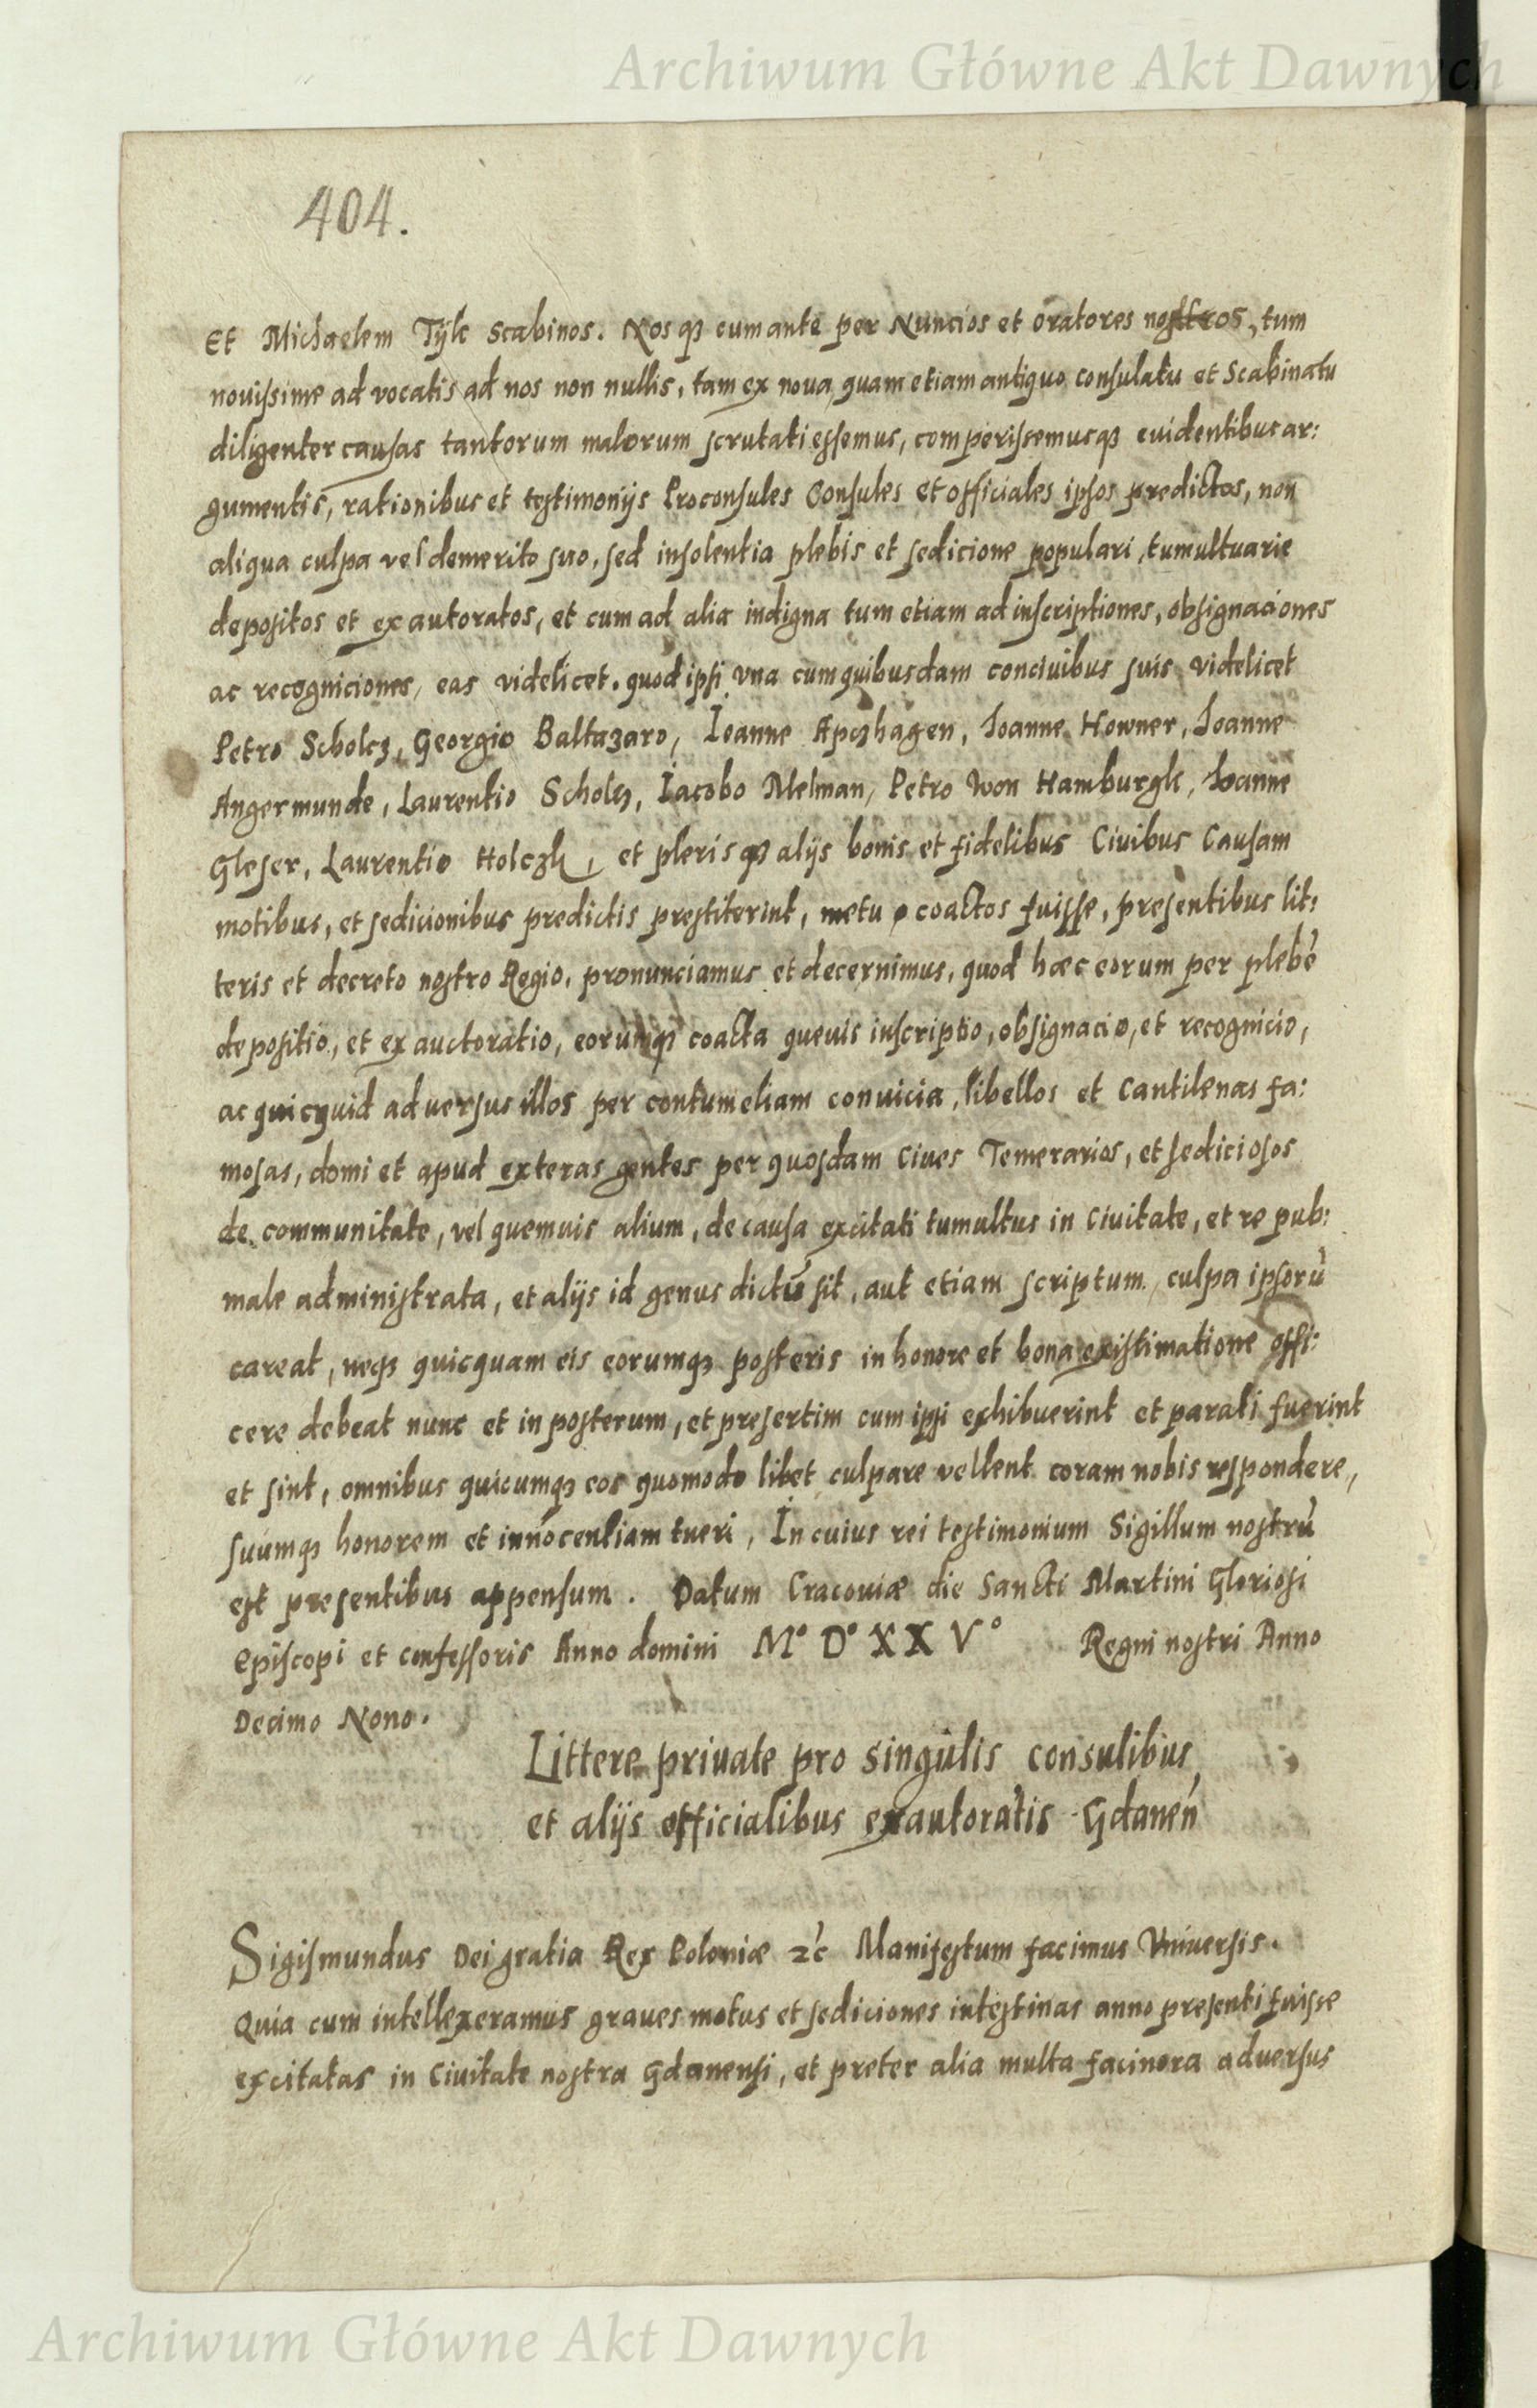 Archiwum Główne Akt Dawnych
404.
Et Michaelem Tÿlc Scabinos. Nos qꝫ cum ante per Nuncios et Oratores nostros, tum
nouissime ad vocatis ad nos non nullis, tam ex noua, quam etiam antiquo consulatu et Scabinatu
diligenter causas tantorum malorum scrutati essemus, comperissemusqꝫ euidentibus ar:
gumentis, rationibus et testimonijs Proconsules Consules et officiales ipsos predictos, non
aliqua culpa vel demerito suo, sed insolentia plebis et sedicione populari tumultuarie
depositos et exautoratos, et cum ad alia indigna tum etiam ad inscriptiones, obsignaciones
ac recogniciones, eas videlicet. quod ipsi vna cum quibusdam conciuibus suis videlicet
Petro Scholcz, Georgio Baltazaro, Ioanne Apczhagen, Ioanne Howner, Ioanne
Angermunde, Laurentio Scholcz, Iacobo Melman, Petro Won Hamburgk, Ioanne
Gleser, Laurentio Holczh, et plerisqꝫ alijs bonis et fidelibus Ciuibus Causam
motibus, et sedicionibus predictis prestiterint, metu coactos fuisse, presentibus lit:
teris et decreto nostro Regio, pronunciamus et decernimus, quod hæc eorum per plebē
depositio, et exauctoratio, eorumqꝫ coacta queuis inscriptio, obsignacio, et recognicio,
ac quicquid aduersus illos per contumeliam conuicia, libellos et Cantilenas fa:
mosas, domi et apud exteras gentes per quosdam Ciues Temerarios, et sediciosos
de communitate, vel quemuis alium, de causa excitati tumultus in Ciuitate, et re pub:
male administrata, et alijs id genus dictū sit, aut etiam scriptum, culpa ipsorū
careat, neqꝫ quicquam eis eorumqꝫ posteris in honore et bona existimatione offi:
cere debeat nunc et in posterum, et presertim cum ipsi exhibuerint et parati fuerint
et sint, omnibus quicumqꝫ eos quomodo libet culpare vellent coram nobis respondere,
suumqꝫ honorem et innocentiam tueri, In cuius rei testimonium Sigillum nostrū
est presentibus appensum. Datum Cracouiæ die Sancti Martini Gloriosi
Episcopi et confessoris Anno domini M° D° XX V° Regni nostri Anno
Decimo Nono.
Littere priuate pro singulis consulibus
et alijs officialibus exautoratis Gdaneń
Sigismundus Dei gratia Rex Poloniæ ꝛc̄ Manifestum facimus Vniuersis.
Quia cum intellexeramus graues motus et sediciones intestinas anno presenti fuisse
excitatas in Ciuitate nostra Gdanensi, et preter alia multa facinora aduersus
Archiwum Główne Akt Dawnych